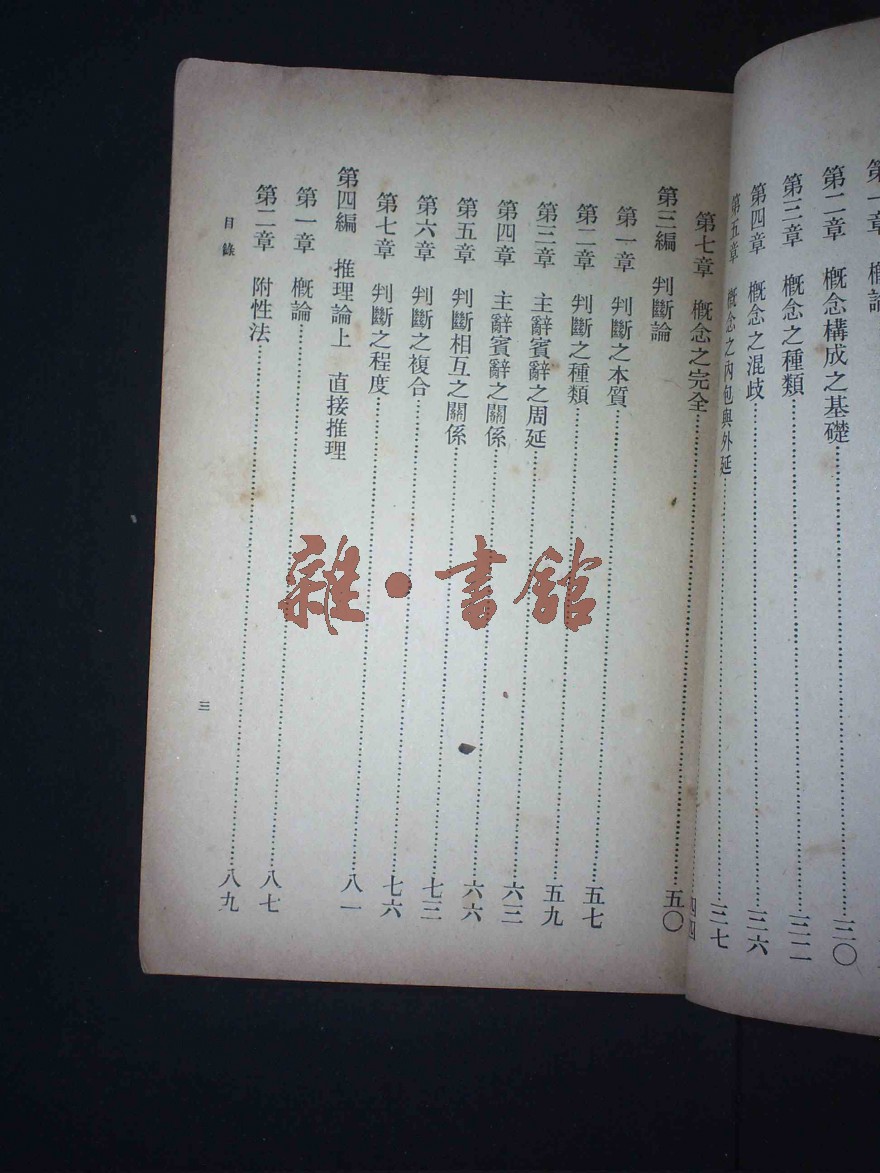 第一章 概論
第二章 概念構成之基礎……三〇
第三章 概念之種類……三二
第四章 概念之混歧……三六
第五章 概念之內包與外延……三七
四四
第七章 概念之完全……五〇
第三編 判斷論
第一章 判斷之本質……五七
第二章 判斷之種類……五九
第三章 主辭賓辭之周延……六三
第四章 主辭賓辭之關係……六六
第五章 判斷相互之關係……七三
第六章 判斷之複合……七六
第七章 判斷之程度……八一
第四編 推理論上 直接推理
第一章 概論……八七
第二章 附性法……八九
目錄
三
雜·書館